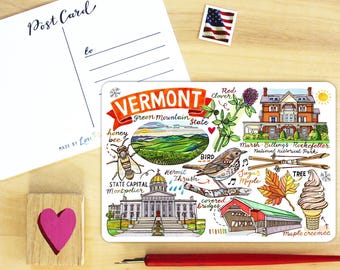 Post Card
to
MADE BY
VERMONT
Green Mountain
State
Red
Clover
honey
bee
Marsh-Billings-Rockefeller
National Historical Park
BIRD
Hermit
Thrush
Sugar
Maple
TREE
STATE CAPITAL
Montpelier
covered
bridges
Maple creemee